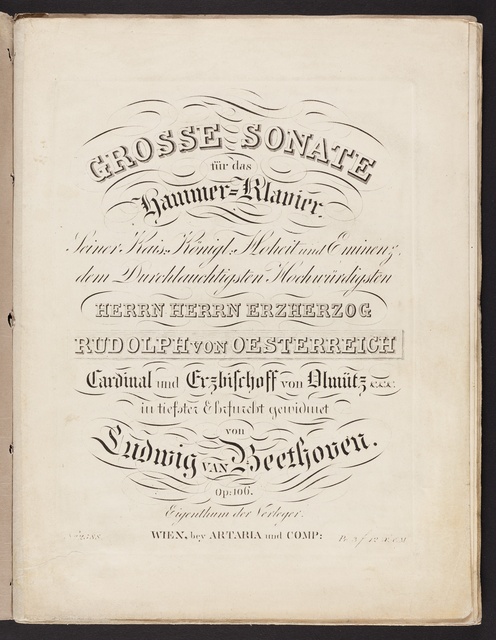 GROSSE SONATE
für das
Hammer=Klavier.
Seiner Kais: Königl: Hoheit und Eminenz,
dem Durchlauchtigsten Hochwürdigsten
HERRN HERRN ERZHERZOG
RUDOLPH VON OESTERREICH
Cardinal und Erzbischoff von Olmütz &c.&c.&c.
in tiefster Ehrfurcht gewidmet
von
Ludwig VAN Beethoven.
Op: 106.
Eigenthum der Verleger.
WIEN, bey ARTARIA und COMP: